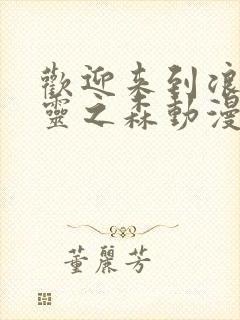 歡迎来到浪
靈之森動漫
董麗芳